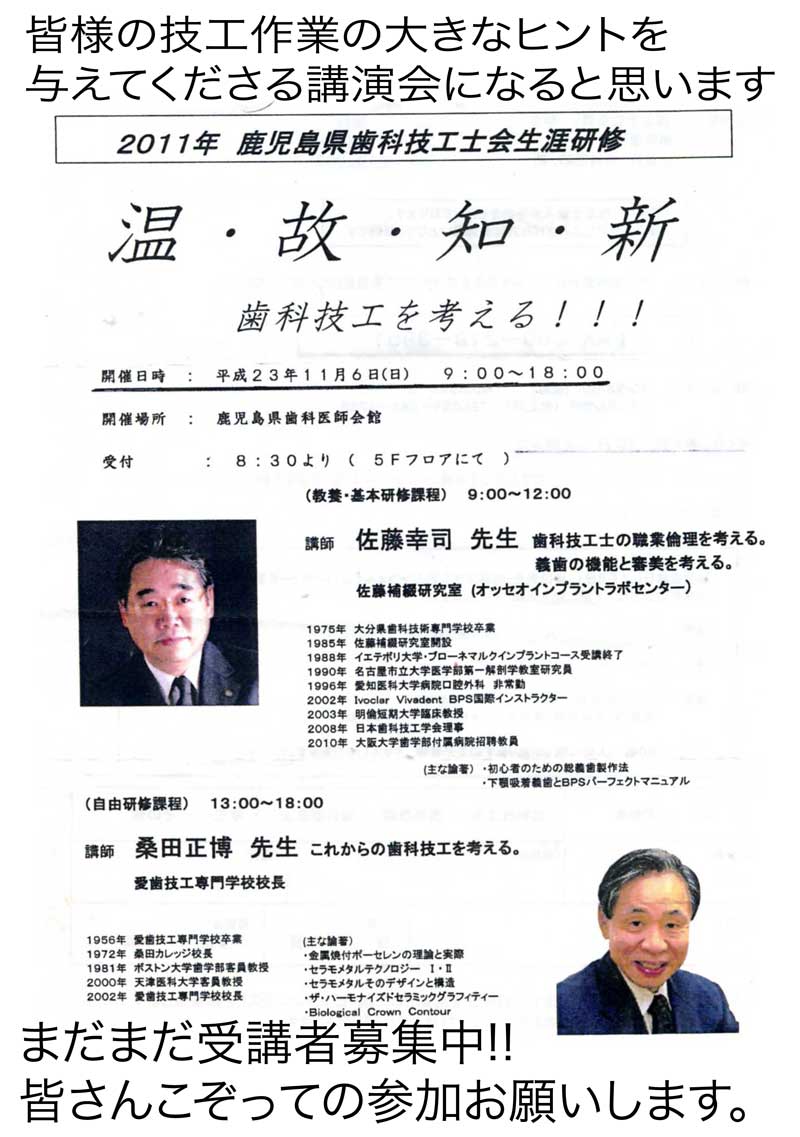 皆様の技工作業の大きなヒントを
与えてくださる講演会になると思います
2011年 鹿児島県歯科技工士会生涯研修
温・故・知・新
歯科技工を考える！！！
開催日時 ： 平成２３年１１月６日(日) ９：００～１８：００
開催場所 ： 鹿児島県歯科医師会館
受付 ： ８：３０より（ ５Ｆフロアにて ）
（教養・基本研修課程） 9:00～12:00
講師 佐藤幸司 先生 歯科技工士の職業倫理を考える。
義歯の機能と審美を考える。
佐藤補綴研究室（オッセオインプラントラボセンター）
1975年 大分県歯科技術専門学校卒業
1985年 佐藤補綴研究室開設
1988年 イエテボリ大学・ブローネマルクインプラントコース受講終了
1990年 名古屋市立大学医学部第一解剖学教室研究員
1996年 愛知医科大学病院口腔外科 非常勤
2002年 Ivoclar Vivadent BPS国際インストラクター
2003年 明倫短期大学臨床教授
2008年 日本歯科技工学会理事
2010年 大阪大学歯学部付属病院招聘教員
（主な論著） ・初心者のための総義歯製作法
・下顎吸着義歯とBPSパーフェクトマニュアル
（自由研修課程） 13:00～18:00
講師 桑田正博 先生 これからの歯科技工を考える。
愛歯技工専門学校校長
1956年 愛歯技工専門学校卒業
1972年 桑田カレッジ校長
1981年 ボストン大学歯学部客員教授
2000年 天津医科大学客員教授
2002年 愛歯技工専門学校校長
（主な論著）
・金属焼付ポーセレンの理論と実際
・セラモメタルテクノロジー Ⅰ・Ⅱ
・セラモメタルそのデザインと構造
・ザ・ハーモナイズドセラミックグラフィティー
・Biological Crown Contour
まだまだ受講者募集中!!
皆さんこぞっての参加お願いします。